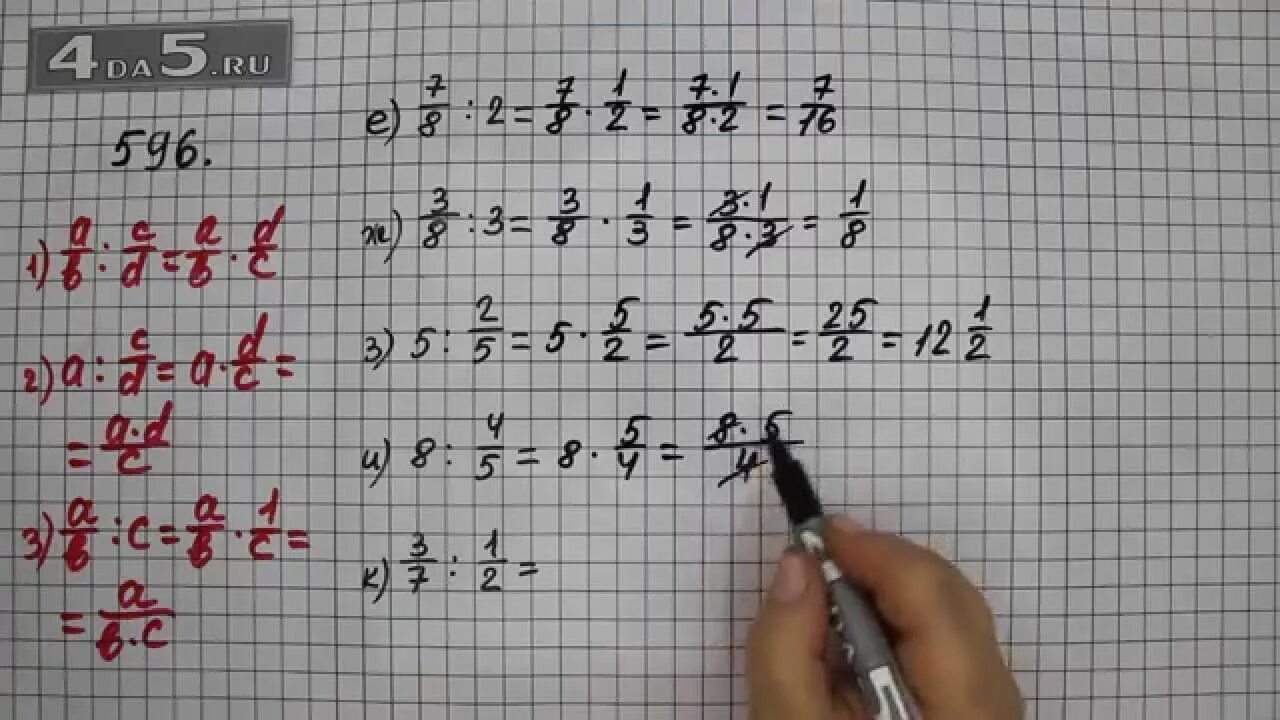 4DA5.RU
596.
1) a/b : c/d = a/b · d/c
2) a : c/d = a · d/c =
= a·d/c
3) a/b : c = a/b · 1/c =
= a/b·c
е) 7/8 : 2 = 7/8 · 1/2 = 7·1/8·2 = 7/16
ж) 3/8 : 3 = 3/8 · 1/3 = 3·1/8·3 = 1/8
з) 5 : 2/5 = 5 · 5/2 = 5·5/2 = 25/2 = 12 1/2
и) 8 : 4/5 = 8 · 5/4 = 8·5/4
к) 3/7 : 1/2 =